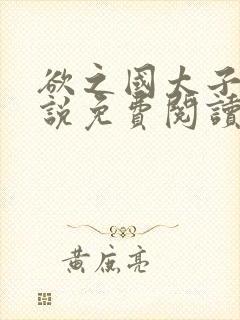 欲之國大子
說免費閱讀
黃庭亮